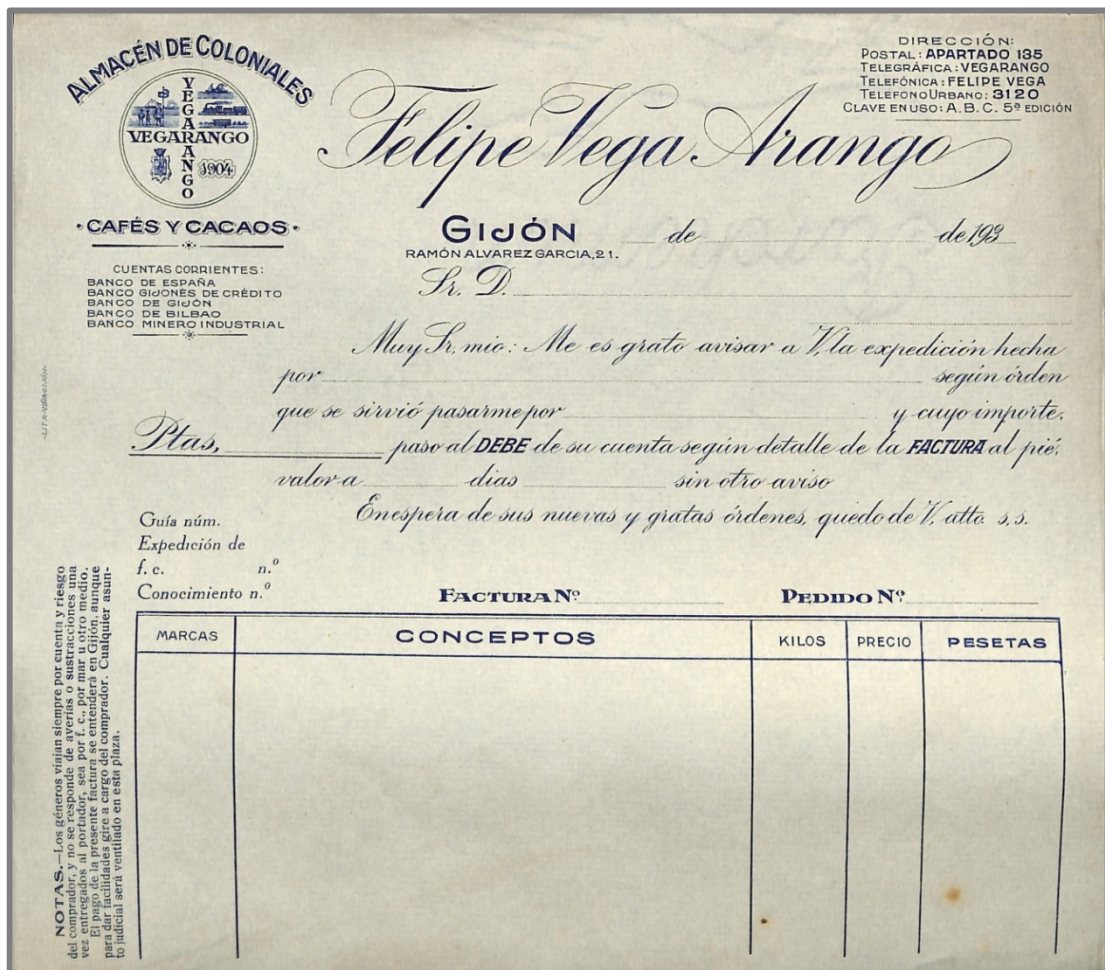 ALMACÉN DE COLONIALES
VEGARANGO
VEGARANGO
1904
• CAFÉS Y CACAOS •
CUENTAS CORRIENTES:
BANCO DE ESPAÑA
BANCO GIJONÉS DE CRÉDITO
BANCO DE GIJÓN
BANCO DE BILBAO
BANCO MINERO INDUSTRIAL
Felipe Vega Arango
DIRECCIÓN:
POSTAL: APARTADO 135
TELEGRÁFICA: VEGARANGO
TELEFÓNICA: FELIPE VEGA
TELEFONO URBANO: 3120
CLAVE EN USO: A.B.C. 5ª EDICIÓN
GIJÓN de de 193
RAMÓN ALVAREZ GARCIA, 21.
Sr. D.
Muy Sr. mio: Me es grato avisar a V. la expedición hecha
por según órden
que se sirvió pasarme por y cuyo importe.
Ptas, paso al DEBE de su cuenta según detalle de la FACTURA al pié.
valor a dias sin otro aviso
En espera de sus nuevas y gratas órdenes, quedo de V. atto. s.s.
Guía núm.
Expedición de
f. c. n.º
Conocimiento n.º
FACTURA Nº PEDIDO Nº
MARCAS CONCEPTOS KILOS PRECIO PESETAS
NOTAS.—Los géneros viajan siempre por cuenta y riesgo
del comprador, y no se responde de averías o sustracciones una
vez entregados al portador, sea por f. c., por mar u otro medio.
El pago de la presente factura se entenderá en Gijón, aunque
para dar facilidades gire a cargo del comprador. Cualquier asun-
to judicial será ventilado en esta plaza.